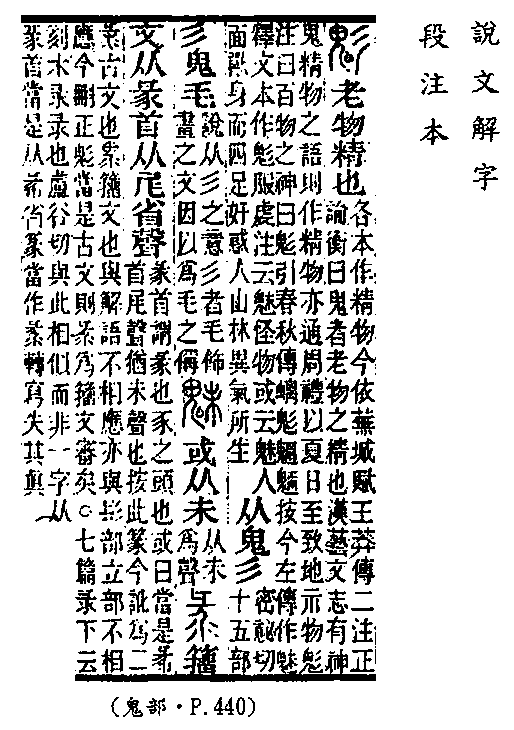 說文解字
段注本
鬽老物精也各本作精物今依蕪城賦王莽傳二注正
論衡曰鬼者老物之精也漢藝文志有神
鬼精物之語則作精物亦通周禮以夏日至致地示物鬽
注曰百物之神曰鬽引春秋傳螭鬽魍魎按今左傳作魅
釋文本作鬽服虔注云魅怪物或云魅人
面獸身而四足好惑人山林異氣所生
从鬼彡密祕切
十五部
彡鬼毛說从彡之意彡者毛飾
畫之文因以爲毛之偁
魅或从未从未
爲聲
籒
文从彖首从尾省聲彖首謂彖也豕之頭也或曰當是㣇
首尾聲猶未聲也按此篆今訛爲二
古文也籒文也與解語不相應亦與部立部不相
應今刪正鬽當是古文則爲籒文審矣○七篇彔下云
刻木彔彔也盧谷切與此相似而非一字从
彖首當是从㣇省篆當作轉寫失其眞
(鬼部·P.440)